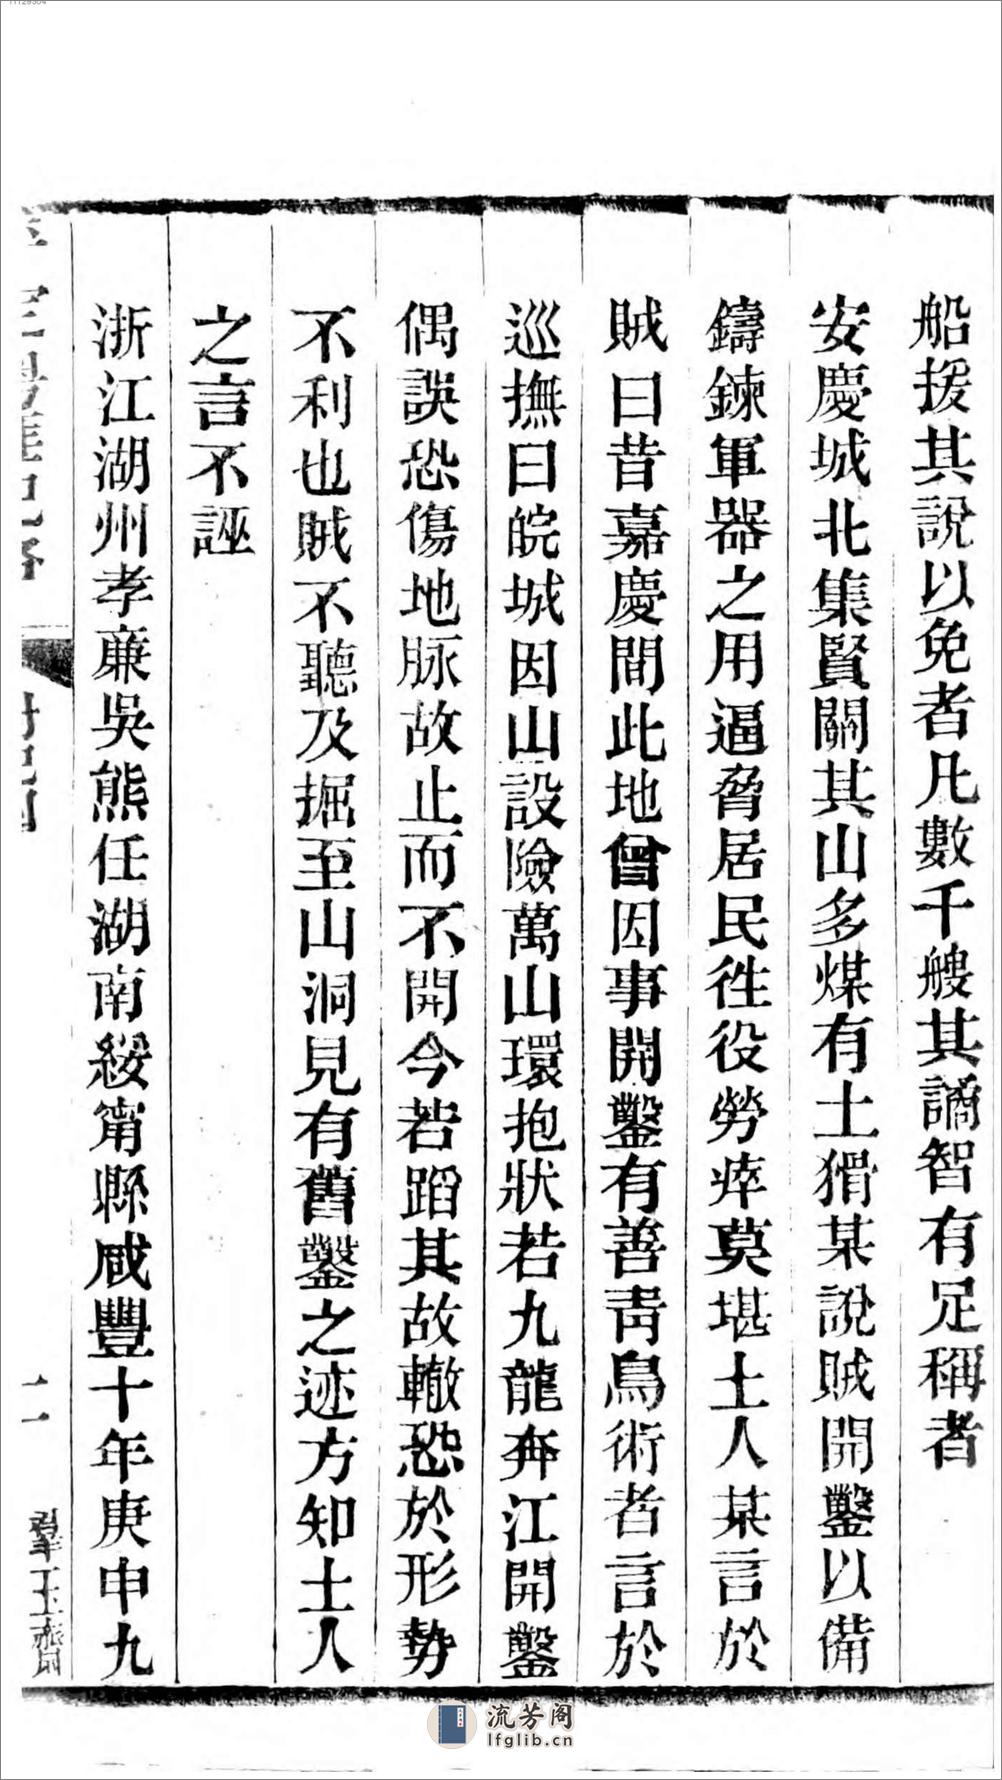 船援其說以免者凡數千艘其譎智有足稱者
安慶城北集賢關其山多煤有土猾某說賊開鑿以備
鑄鍊軍器之用逼脅居民徃役勞瘁莫堪土人某言於
賊曰昔嘉慶間此地曾因事開鑿有善靑鳥術者言於
巡撫曰皖城因山設險萬山環抱狀若九龍奔江開鑿
偶誤恐傷地脈故止而不開今若蹈其故轍恐於形勢
不利也賊不聽及掘至山洞見有舊鑿之迹方知土人
之言不誣
浙江湖州孝廉吳熊任湖南綏甯縣咸豐十年庚申九
二
羣玉齋
流芳阁
lfglib.cn